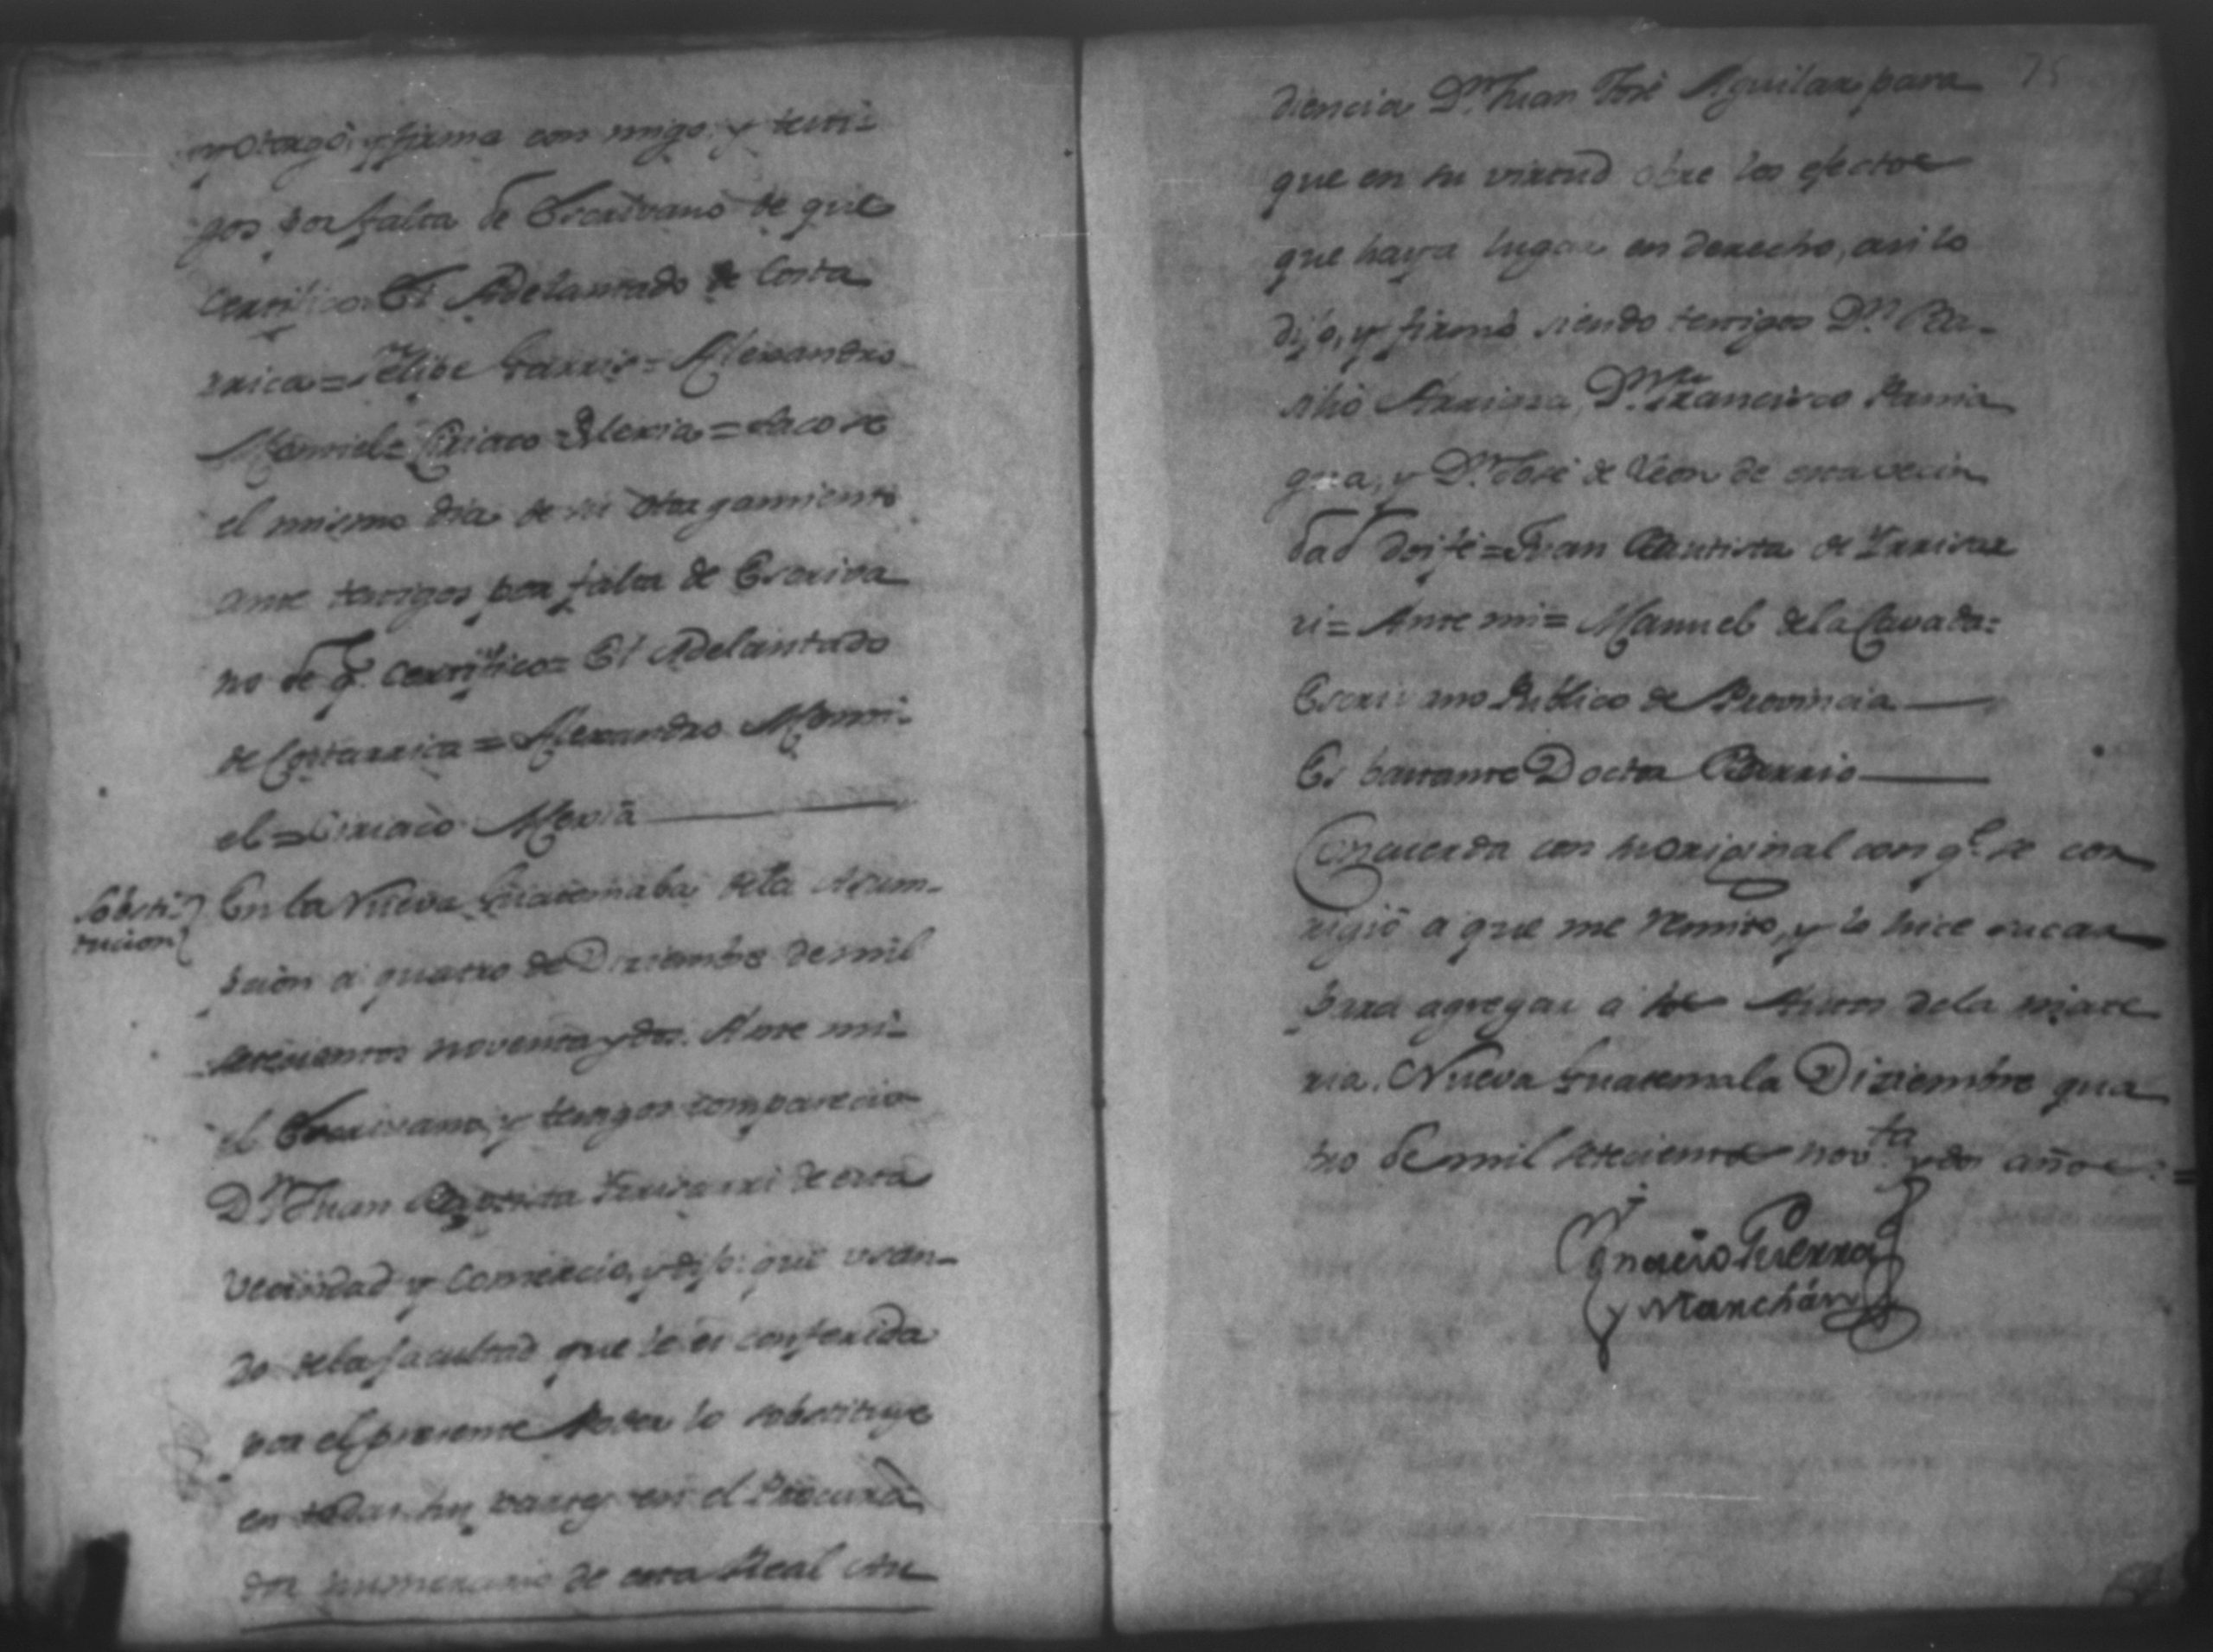 y Otorgó, y firma con migo, y testi=
gos por falta de Escrivano de que
Certifico. El Adelantado de Costa
rrica = Felipe = Alexandro
Monniel = Ciriaco Mexia = Sacose
el mismo dia de su Otorgamiento
ante testigos por falta de Escriva
no de q.e Certifico = El Adelantado
de Costarrica = Alexandro Monni-
el = Ciriaco Mexia
Sobsti-
tucion
En la Nueva Guatemala de la Asum-
pcion á quatro de Diziembre de mil
setecientos noventa y dos. Ante mi
el Escrivano, y testigos comparecio
D.n Juan Bautista Irrisarri de esta
Vecindad y Comercio, y dijo: que usan-
do de la facultad que le es conferida
por el presente Poder lo sobstituye
en todas sus partes en el Procura
dor numerario de esta Real Au
75
diencia D.n Juan José Aguilar para
que en su virtud obre los efectos
que haya lugar en derecho, asi lo
dijo, y firmó siendo testigos D.n Ba-
silio Arriaza, D.n Francisco Pania
gua, y D.n José de Leon de esta vecin
dad doi fé = Juan Bautista de Irrisar
ri = Ante mi = Manuel de la Cavada =
Escrivano Publico de Provincia
Es bastante Doctor Barrio
Concuerda con su original con q.e se cor
rigió a que me remito, y lo hice sacar
para agregar a los Autos de la mate
ria. Nueva Guatemala Diziembre qua
tro de mil setecientos nov.ta y dos años =
Ygnacio Guerra
y Marchán